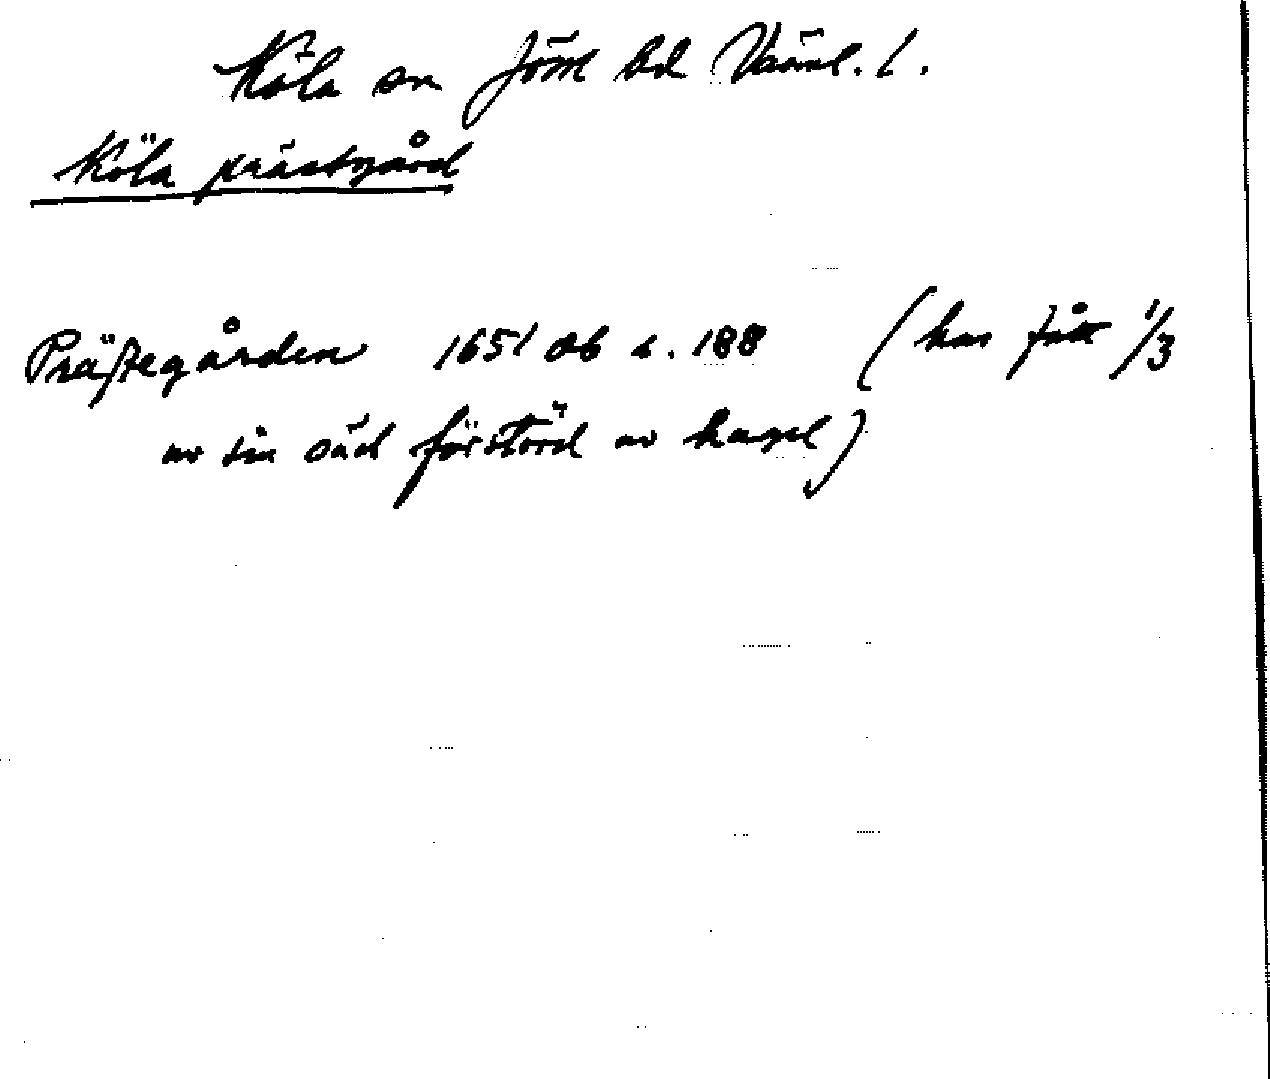 Köla sn Jösse hd Värml. l.
Köla prästgård
Prästegården 1651 db s. 188 (har fått 1/3
av sin säd förstörd av hagel)